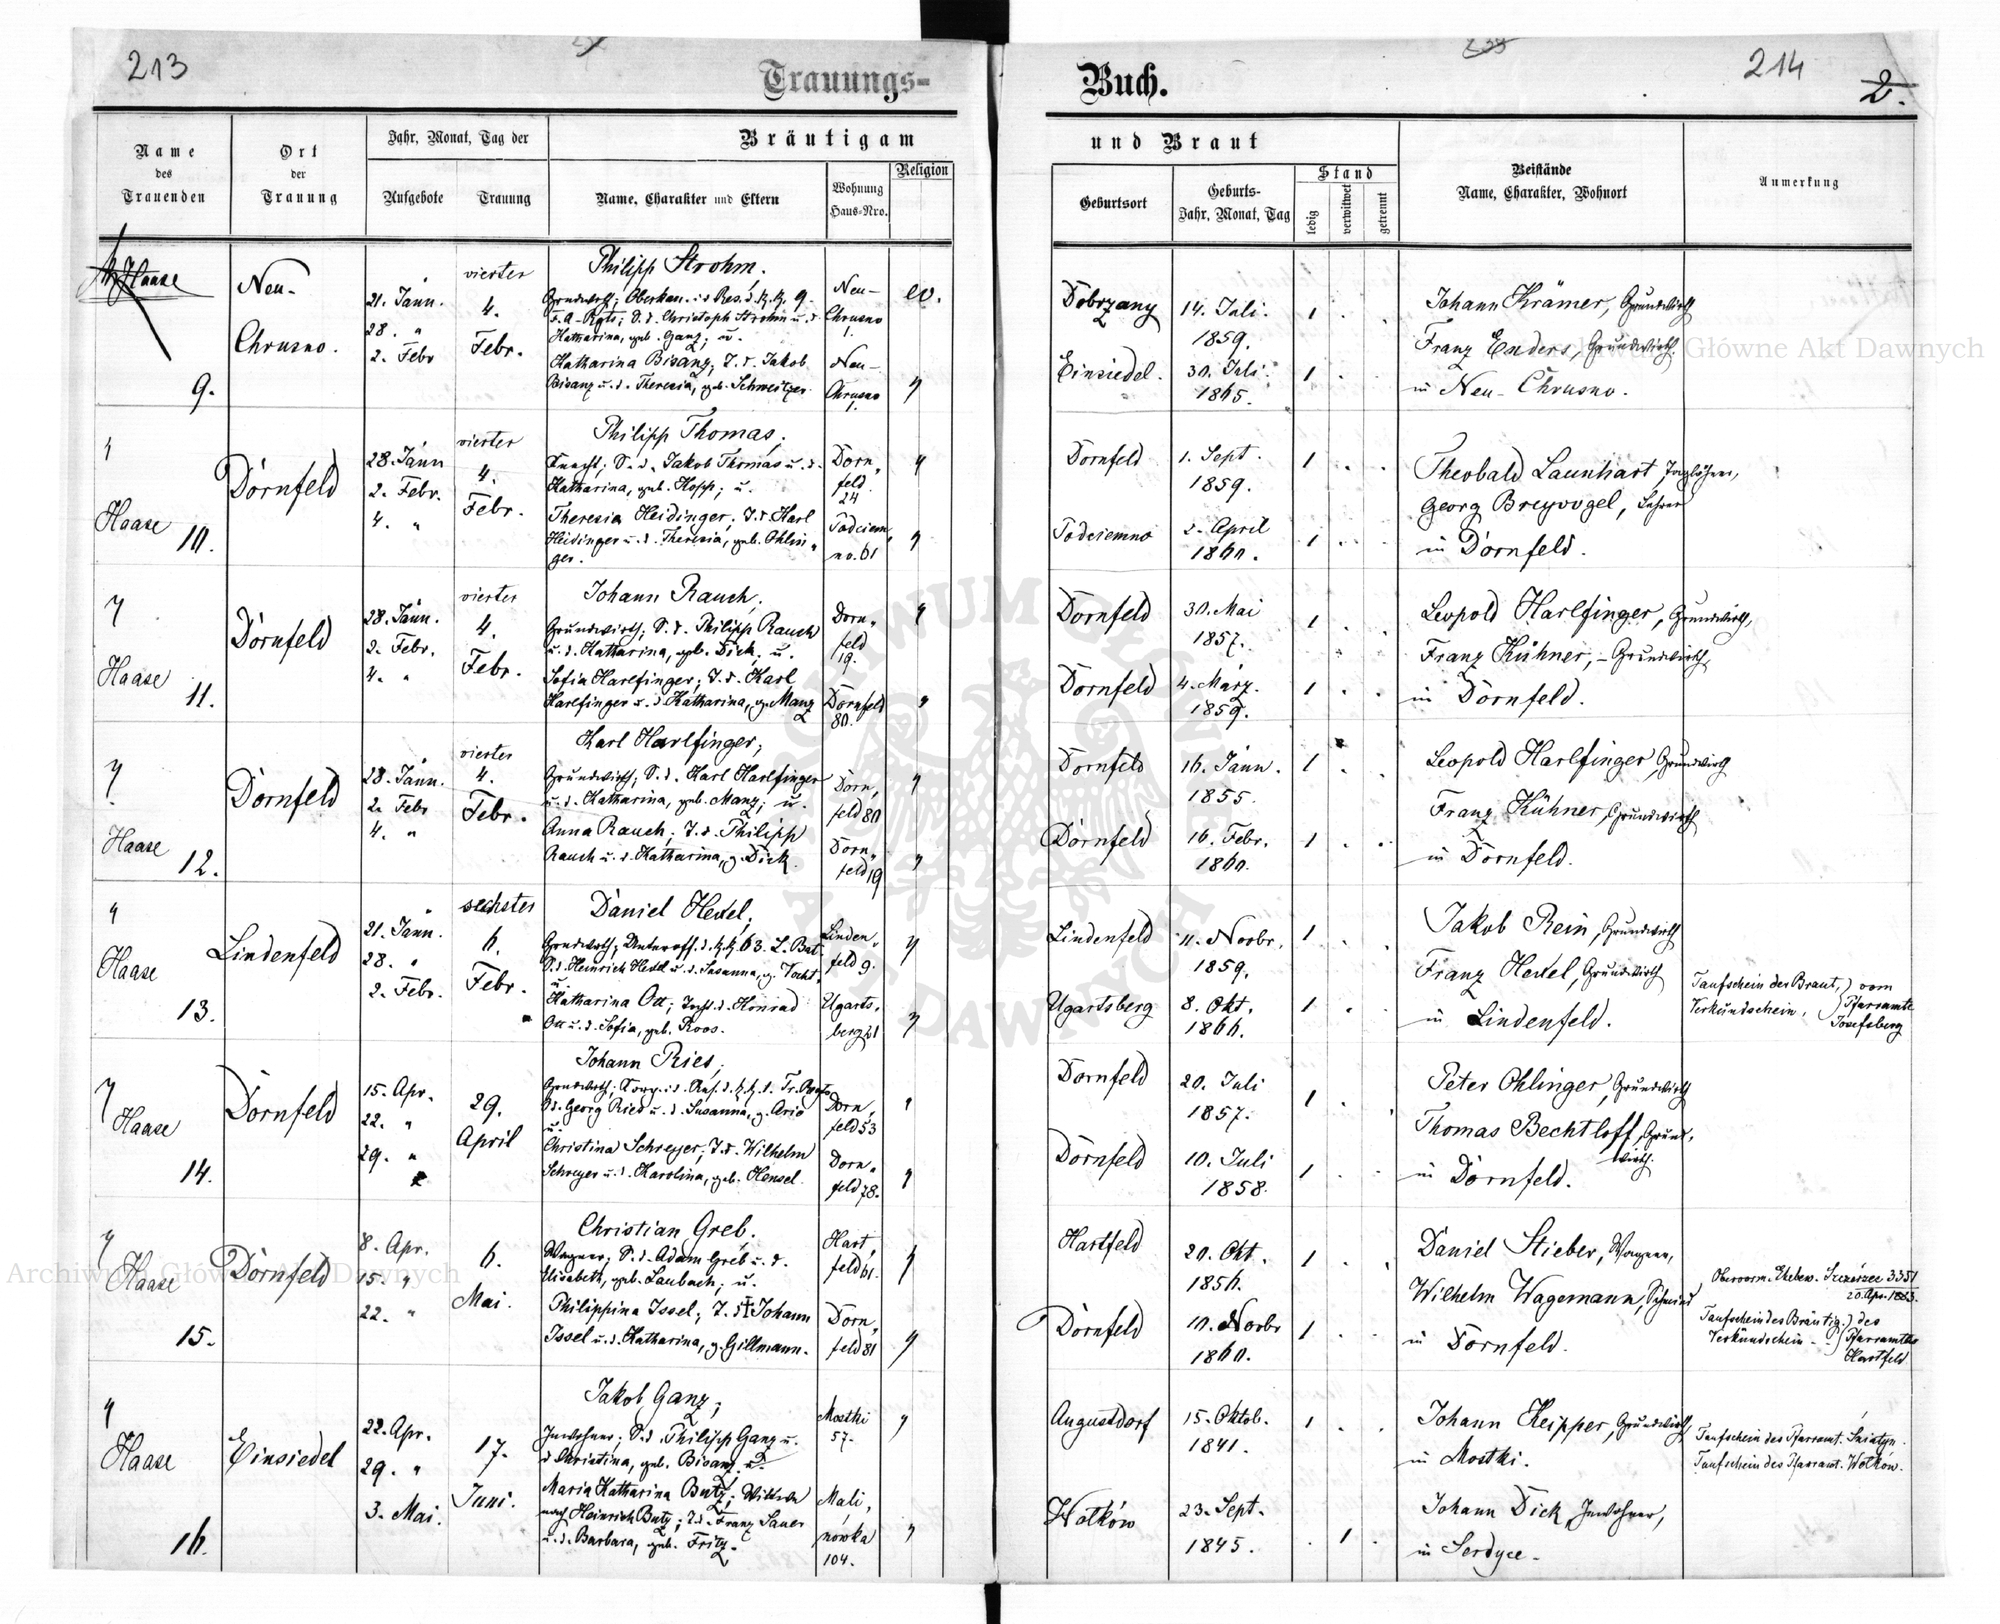 213
Trauungs-
Buch.
214
2.
Name
des
Trauenden
Ort
der
Trauung
Jahr, Monat, Tag der
Aufgebote
Trauung
Bräutigam
Name, Charakter und Eltern
Wohnung
Haus-Nro.
Religion
und Braut
Geburtsort
Geburts-
Jahr, Monat, Tag
Stand
ledig
verwitwet
getrennt
Beistände
Name, Charakter, Wohnort
Anmerkung
Haase
9.
Neu-
Chrusno.
21. Jänn.
28. "
2. Febr
vierter
4.
Febr.
Philipp Strohm.
F.A-Rgts; S.d. Christoph Strohm u. d.
Katharina, geb. Ganz; u.
Katharina Bisanz; T.d. Jakob
Bisanz u. d. Theresia, geb. Schweitzer
Neu-
Chrusno
1.
Neu-
Chrusno
1.
ev.
"
Dobrzany
Einsiedel.
14. Juli.
1859.
30. Juli.
1865.
1 . .
1 . .
Johann Krämer, Grundwirth
Franz Enders, Grundwirth
in Neu-Chrusno.
"
Haase
10.
Dornfeld
28. Jänn
2. Febr.
4. "
vierter
4.
Febr.
Philipp Thomas;
Knecht; S. d. Jakob Thomas u. d.
Katharina, geb. Hopp; u.
Theresia Heidinger; T.d. Karl
Heidinger u. d. Theresia, geb. Ohlin-
ger.
Dorn,
feld
24
Podciem,
no. 61
"
"
Dornfeld
Podciemno
1. Sept.
1859.
2. April
1860.
1 . .
1 . .
Theobald Launhart, Taglöhner,
Georg Breyvogel, Lehrer
in Dornfeld.
"
Haase
11.
Dornfeld
28. Jänn.
2. Febr.
4. "
vierter
4.
Febr.
Johann Rauch,
Grundwirth; S.d. Philipp Rauch
u. d. Katharina, geb. Dick; u.
Sofia Harlfinger; T.d. Karl
Harlfinger u. d. Katharina, g. Manz
Dorn,
feld
19.
Dornfeld
80.
"
"
Dornfeld
Dornfeld
30. Mai
1857.
4. März.
1859.
1 . .
1 . .
Leopold Harlfinger, Grundwirth,
Franz Kühner, Grundwirth,
in Dornfeld.
"
Haase
12.
Dornfeld
28. Jänn.
2. Febr
4. "
vierter
4.
Febr.
Karl Harlfinger;
Grundwirth; S.d. Karl Harlfinger
u. d. Katharina, geb. Manz; u.
Anna Rauch; T.d. Philipp
Rauch u. d. Katharina, g. Dick.
Dorn,
feld 80
Dorn,
feld 19
"
"
Dornfeld
Dornfeld
16. Jänn.
1855.
16. Febr.
1860.
1 . .
1 . .
Leopold Harlfinger, Grundwirth
Franz Kühner, Grundwirth
in Dornfeld.
"
Haase
13.
Lindenfeld
21. Jänn.
28. "
2. Febr.
sechster
6.
Febr.
Daniel Hexel;
S.d. Heinrich Hexel u. d. Susanna,
u.
Katharina Ott; Tocht. d. Konrad
Ott u. d. Sofia, geb. Roos.
Linden,
feld 9.
Ugarts,
berg 21
"
"
Lindenfeld
Ugartsberg
11. Novbr.
1859.
8. Okt.
1866.
1 . .
1 . .
Jakob Rein, Grundwirth
Franz Hexel, Grundwirth
in Lindenfeld.
Taufschein der Braut, vom
Verkündschein, Pfarramte
Josefsberg
"
Haase
14.
Dornfeld
15. Apr.
22. "
29. "
29.
April
Johann Ries;
S.d. Georg Ries u. d. Susanna,
u.
Christina Schreyer; T.d. Wilhelm
Schreyer u. d. Karolina, geb. Hensel.
Dorn,
feld 53
Dorn,
feld 78.
"
"
Dornfeld
Dornfeld
20. Juli
1857.
10. Juli
1858.
1 . .
1 . .
Peter Ohlinger, Grundwirth
Thomas Bechtloff, Grund,
wirth.
in Dornfeld.
"
Haase
15.
Dornfeld
8. Apr.
15. "
22. "
6.
Mai.
Christian Greb.
Wagner; S.d. Adam Greb u. d.
Elisabeth, geb. Laubach; u.
Philippina Issel; T.d. † Johann
Issel u. d. Katharina, g. Gillmann.
Hart,
feld 61.
Dorn,
feld 81
"
"
Hartfeld
Dornfeld
20. Okt.
1856.
10. Novbr
1860.
1 . .
1 . .
Daniel Stieber, Wagner,
Wilhelm Wagemann, Schmied
in Dornfeld.
20. Apr. 1883.
Taufschein des Bräutig. des
Verkündschein Pfarramtes
Hartfeld
"
Haase
16.
Einsiedel
22. Apr.
29. "
3. Mai.
17.
Juni.
Jakob Ganz;
Inwohner; S.d. Philipp Ganz u.
d. Christina, geb. Bisanz. u.
Maria Katharina Butz; Wittwe
nach Heinrich Butz; T.d. Franz Sauer
u. d. Barbara, geb. Fritz.
Mostki
57.
Mali,
nówka
104.
"
"
Augustdorf
Wolków
15. Oktob.
1841.
23. Sept.
1845.
1 . .
. 1 .
Johann Keipper, Grundwirth,
in Mostki.
Johann Dick, Inwohner,
in Serdyce.
Taufschein des Pfarramt. Sniatyn.
Taufschein des Pfarramt. Wolkow.
Archiwum Główne Akt Dawnych
Archiwum Główne Akt Dawnych
ARCHIWUM GŁÓWNE
AKT DAWNYCH